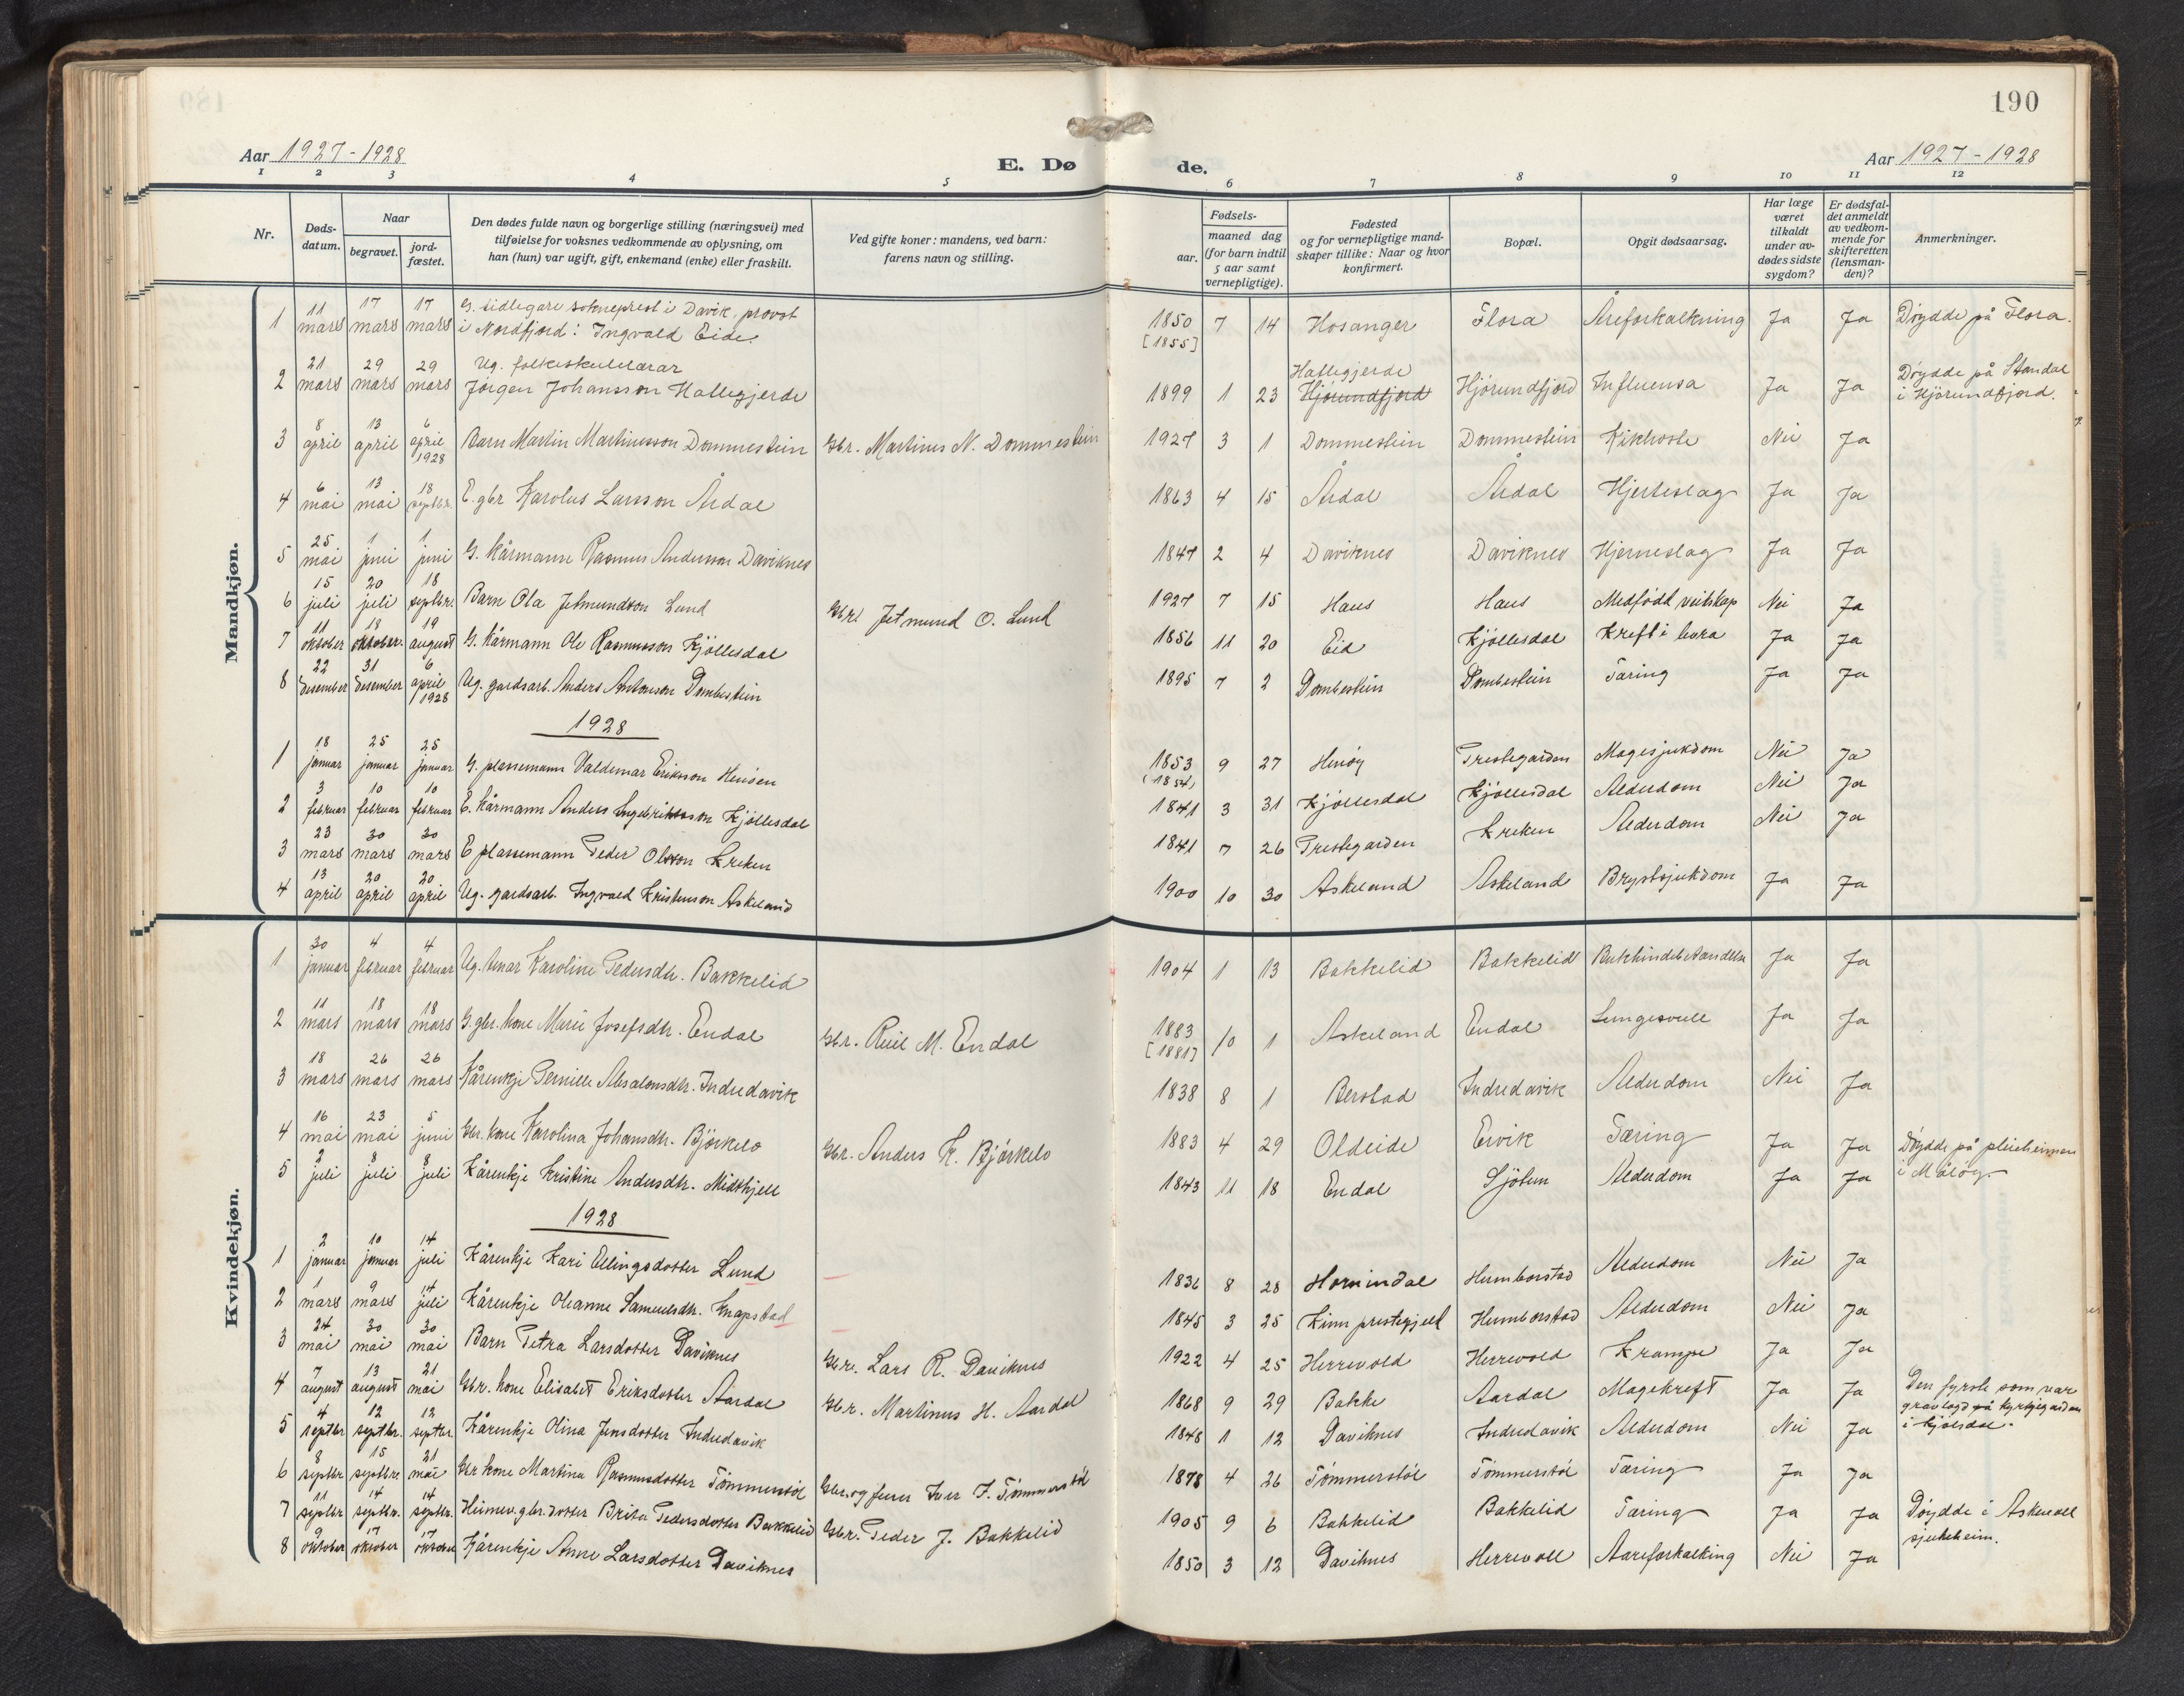 190
Aar 1927-1928
E. Dø
de.
Aar 1927-1928
1 2 3 4 5 6 7 8 9 10 11 12
Nr.
Døds-
datum.
Naar
begravet.
jord-
fæstet.
Den dødes fulde navn og borgerlige stilling (næringsvei) med
tilføielse for voksnes vedkommende av oplysning, om
han (hun) var ugift, gift, enkemand (enke) eller fraskilt.
Ved gifte koner: mandens, ved barn:
farens navn og stilling.
Fødsels-
aar.
maaned dag
(for barn indtil
5 aar samt
vernepligtige).
Fødested
og for vernepligtige mand-
skaper tillike: Naar og hvor
konfirmert.
Bopæl.
Opgit dødsaarsag.
Har læge
været
tilkaldt
under av-
dødes sidste
sygdom?
Er dødsfal-
det anmeldt
av vedkom-
mende for
skifteretten
(lensman-
den)?
Anmerkninger.
Mandkjøn.
1 11 mars 17 mars 17 mars G. tidlegare sokneprest i Davik, provst
i Nordfjord: Ingvald Eide. 1850 [1855] 7 14 Hosanger Flora Åreforkalkning Ja Ja Døydde på Flora.
2 21 mars 29 mars 29 mars Ug. folkeskulelærar
Jørgen Johansson Hallegjerde 1899 1 23 Hallegjerde Hjørundfjord Hjørundfjord Influensa Ja Ja Døydde på Standal
i Hjørundfjord.
3 8 april 13 april 6 april 1928 Barn Martin Martinusson Dommestein Gbr. Martinus N. Dommestein 1927 3 1 Dommestein Dommestein Kikhoste Nei Ja
4 6 mai 13 mai 18 septbr. E. gbr Karolus Larsson Årdal 1863 4 15 Årdal Årdal Hjerteslag Ja Ja
5 25 mai 1 juni 1 juni G. kårmann Rasmus Andersson Daviknes 1847 2 4 Daviknes Daviknes Hjerneslag Ja Ja
6 15 juli 20 juli 18 septbr. Barn Ola Jetmundson Lund Gbr. Jetmund O. Lund 1927 7 15 Haus Haus Medfødt veikskap Nei Ja
7 11 oktober 18 oktober. 19 august G. kårmann Ole Rasmusson Kjøllesdal 1856 11 20 Eid Kjøllesdal Kreft i levra Ja Ja
8 22 desember 31 desember 6 april 1928 Ug. gardsarb. Anders Antonson Dombestein 1895 7 2 Dombestein Dombestein Tæring Ja Ja
1928
1 18 januar 25 januar 25 januar G. plassemann Valdemar Eriksson Henøen 1853 (1854) 9 27 Henøy Prestegarden Magesjukdom Nei Ja
2 3 februar 10 februar 10 februar E. kårmann Anders Ingebriktsson Kjøllesdal 1841 3 31 Kjøllesdal Kjøllesdal Alderdom Nei Ja
3 23 mars 30 mars 30 mars E plassemann Peder Olsson Kreken 1841 7 26 Prestegarden Kreken Alderdom Nei Ja
4 13 april 20 april 20 april Ug. gardsarb. Ingvald Kristenson Askeland 1900 10 30 Askeland Askeland Brystsjukdom Ja Ja
Kvindekjøn.
1 30 januar 4 februar 4 februar Ug. Karoline Pedersdtr. Bakkelid 1904 1 13 Bakkelid Bakkelid Ja Ja
2 11 mars 18 mars 18 mars G. gbr. kone Marie Josefsdtr. Endal Gbr. M. Endal 1883 [1881] 10 1 Askeland Endal Ja Ja
3 18 mars 26 mars 26 mars Kårenkje Pernille Absalonsdtr. Indredavik 1838 8 1 Berstad Indredavik Alderdom Nei Ja
4 16 mai 23 mai 5 juni Gbr. kone Karolina Johansdtr. Bjørkelo Gbr. Anders K. Bjørkelo 1883 4 29 Oldeide Ervik Tæring Ja Ja Døydde på pleieheimen
i Måløy.
5 2 juli 8 juli 8 juli Kårenkje Kristine Andersdtr. Midthjell 1843 11 18 Endal Sjøtun Alderdom Ja Ja
1928
1 2 januar 10 januar 14 juli Kårenkje Kari Ellingsdotter Lund 1836 8 28 Hornindal Humborstad Alderdom Nei Ja
2 1 mars 9 mars 14 juli Kårenkje Oleanne Samuelsdtr. Knapstad 1845 3 25 Kinn prestegjeld Humborstad Alderdom Nei Ja
3 24 mai 30 mai 30 mai Barn Petra Larsdotter Daviknes Gbr. Lars R. Daviknes 1922 4 25 Herrevold Herrevold Krampe Ja Ja
4 7 august 13 august 21 mai Gbr. kone Elisabet Eriksdotter Aardal Gbr. Martinus H. Aardal 1868 9 29 Bakke Aardal Magekreft Ja Ja Den fyrste som var
gravlagd på kyrkjegarden
i Kjølsdal.
5 4 septbr 12 septbr. 12 septbr Kårenkje Olina Jensdotter Indredavik 1848 1 12 Daviknes Indredavik Alderdom Nei Ja
6 8 septbr 15 septbr 21 mai Gbr kone Martina Rasmusdotter Tømmerstøl Gbr. og Iver F. Tømmerstøl 1878 4 26 Tømmerstøl Tømmerstøl Tæring Ja Ja
7 11 septbr 14 septbr. 14 septbr. Heimev. gbr. dotter Brita Pedersdotter Bakkelid Gbr. Peder J. Bakkelid 1905 9 6 Bakkelid Bakkelid Tæring Ja Ja Døydde i Askvoll
sjukeheim.
8 9 oktober 17 oktober 17 oktober Kårenkje Anne Larsdotter Daviknes 1850 3 12 Daviknes Herrevoll Aareforkalking Nei Ja